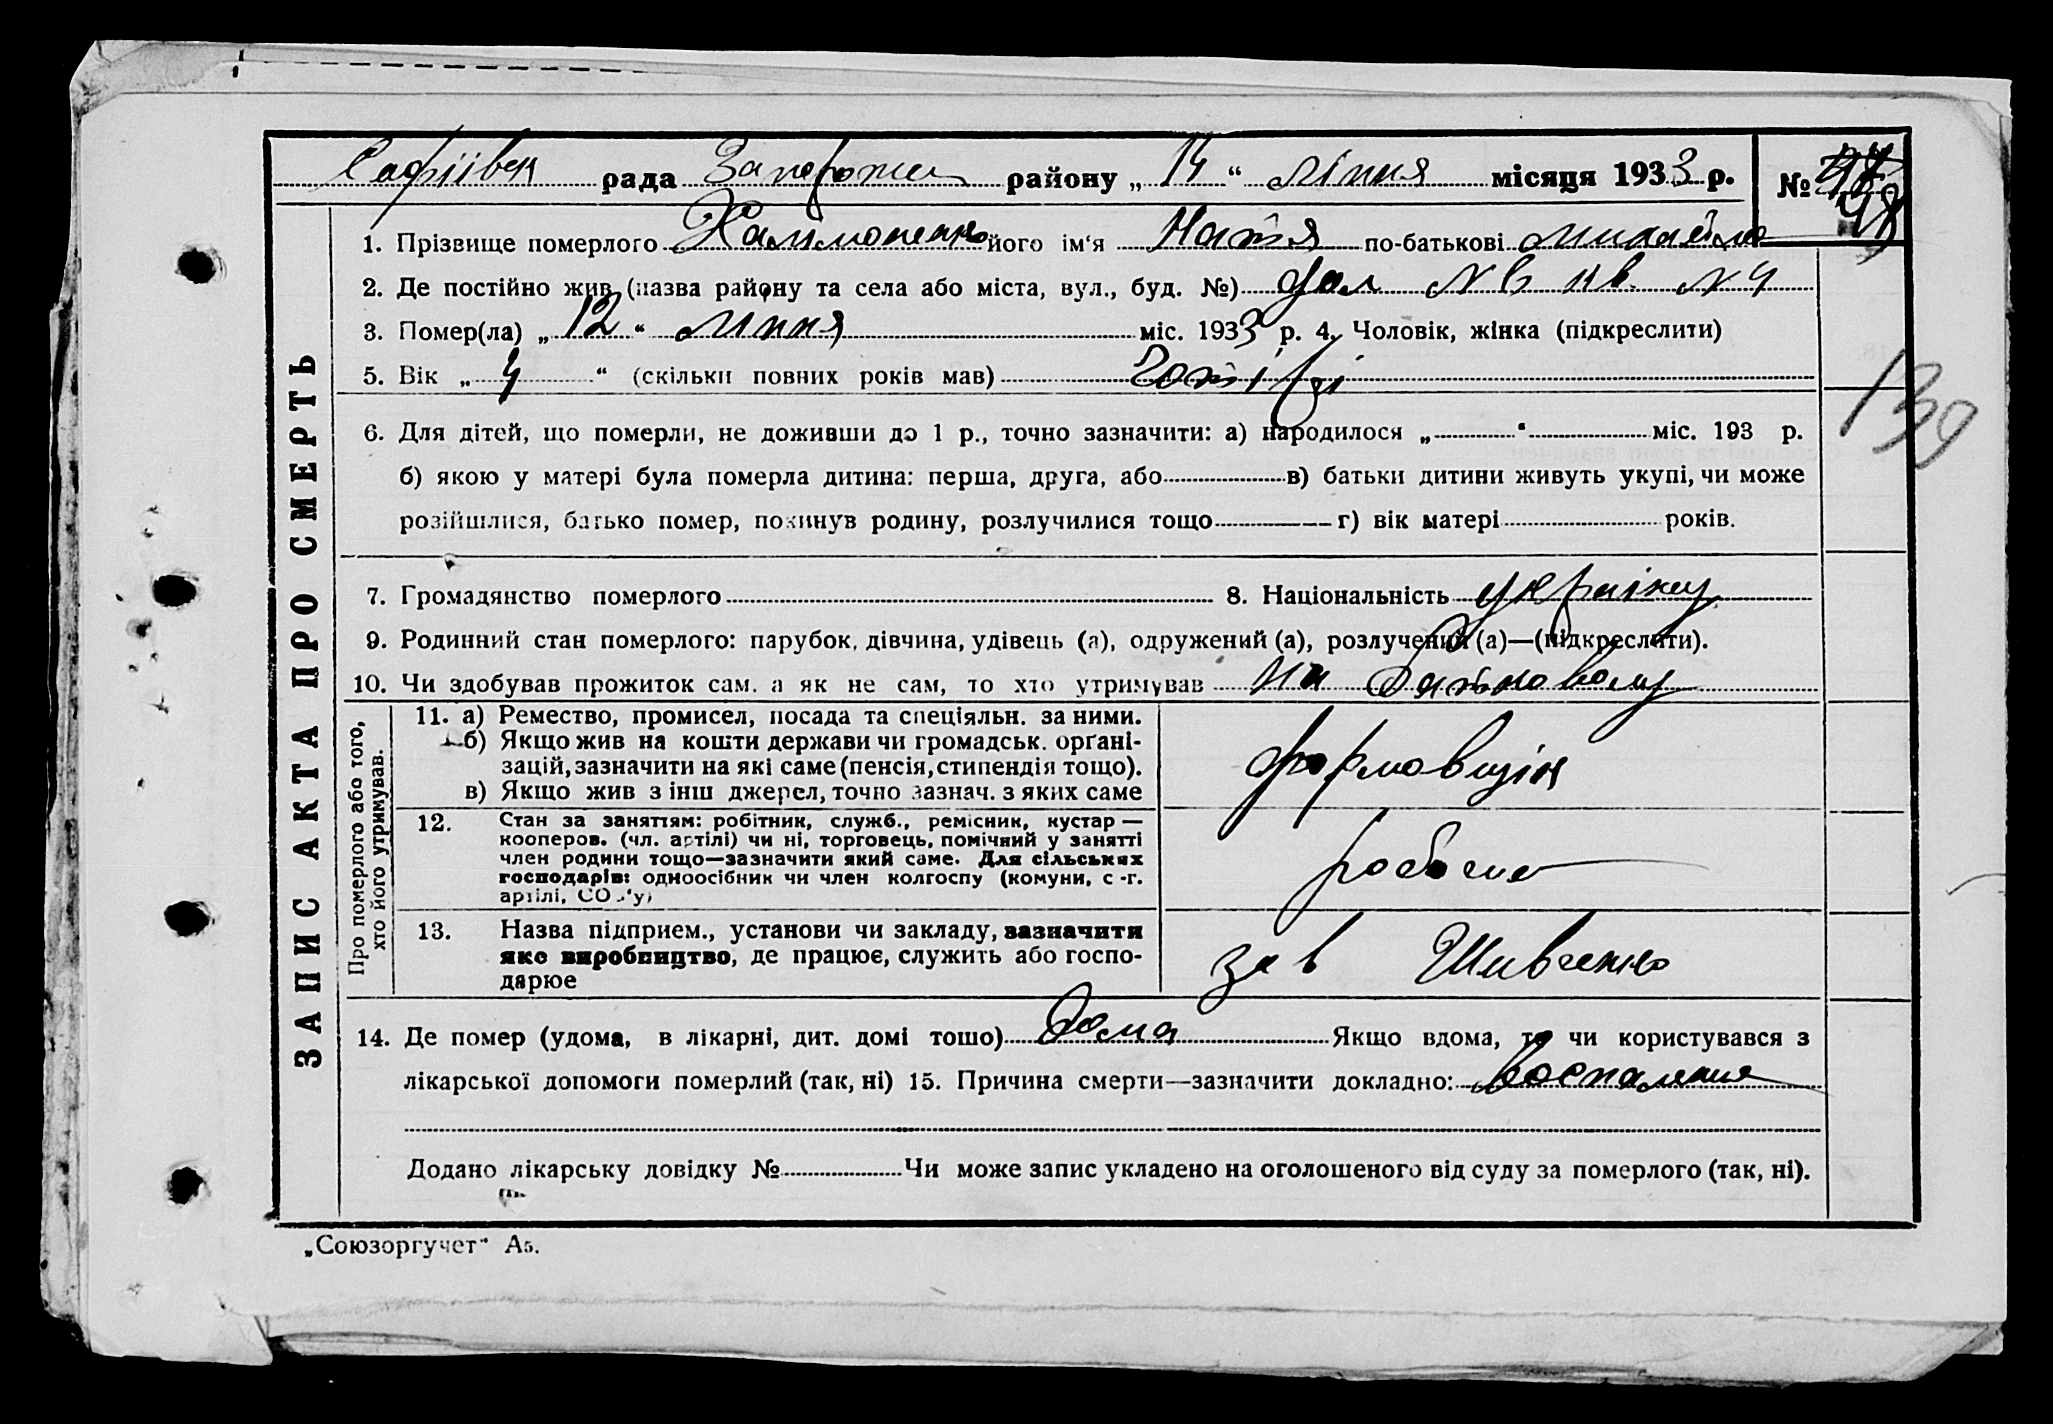 Софіївск рада Запорожск району „ 14 “ липня місяця 1933 р. № 48
1. Прізвище померлого його ім'я Натя по-батькові
2. Де постійно жив (назва району та села або міста, вул., буд. №) №
3. Помер(ла) „ 12 “ липня міс. 1933 р. 4. Чоловік, жінка (підкреслити)
5. Вік „ 4 “ (скільки повних років мав)
6. Для дітей, що померли, не доживши до 1 р., точно зазначити: а) народилося „ “ міс. 193 р.
б) якою у матері була померла дитина: перша, друга, або в) батьки дитини живуть укупі, чи може
розійшлися, батько помер, покинув родину, розлучилися тощо г) вік матері років.
7. Громадянство померлого 8. Національність україну
9. Родинний стан померлого: парубок, дівчина, удівець (а), одружений (а), розлучений (а)—(підкреслити).
10. Чи здобував прожиток сам, а як не сам, то хто утримував
ЗАПИС АКТА ПРО СМЕРТЬ
Про померлого або того, хто його утримував.
11. а) Ремество, промисел, посада та спеціяльн. за ними.
б) Якщо жив на кошти держави чи громадськ. органі-
зацій, зазначити на які саме (пенсія, стипендія тощо).
в) Якщо жив з інш джерел, точно зазнач. з яких саме
формовщик
12. Стан за заняттям: робітник, служб., ремісник, кустар—
кооперов. (чл. артілі) чи ні, торговець, помічний у занятті
член родини тощо—зазначити який саме. Для сільських
господарів: одноосібник чи член колгоспу (комуни, с-г.
артілі, СОЗ'у)
13. Назва підприєм., установи чи закладу, зазначити
яке виробництво, де працює, служить або госпо-
дарює
зав Шивченко
14. Де помер (удома, в лікарні, дит. домі тощо) Дома Якщо вдома, то чи користувався з
лікарської допомоги померлий (так, ні) 15. Причина смерти—зазначити докладно: воспаления
Додано лікарську довідку № Чи може запис укладено на оголошеного від суду за померлого (так, ні).
„Союзоргучет“ А5.
139